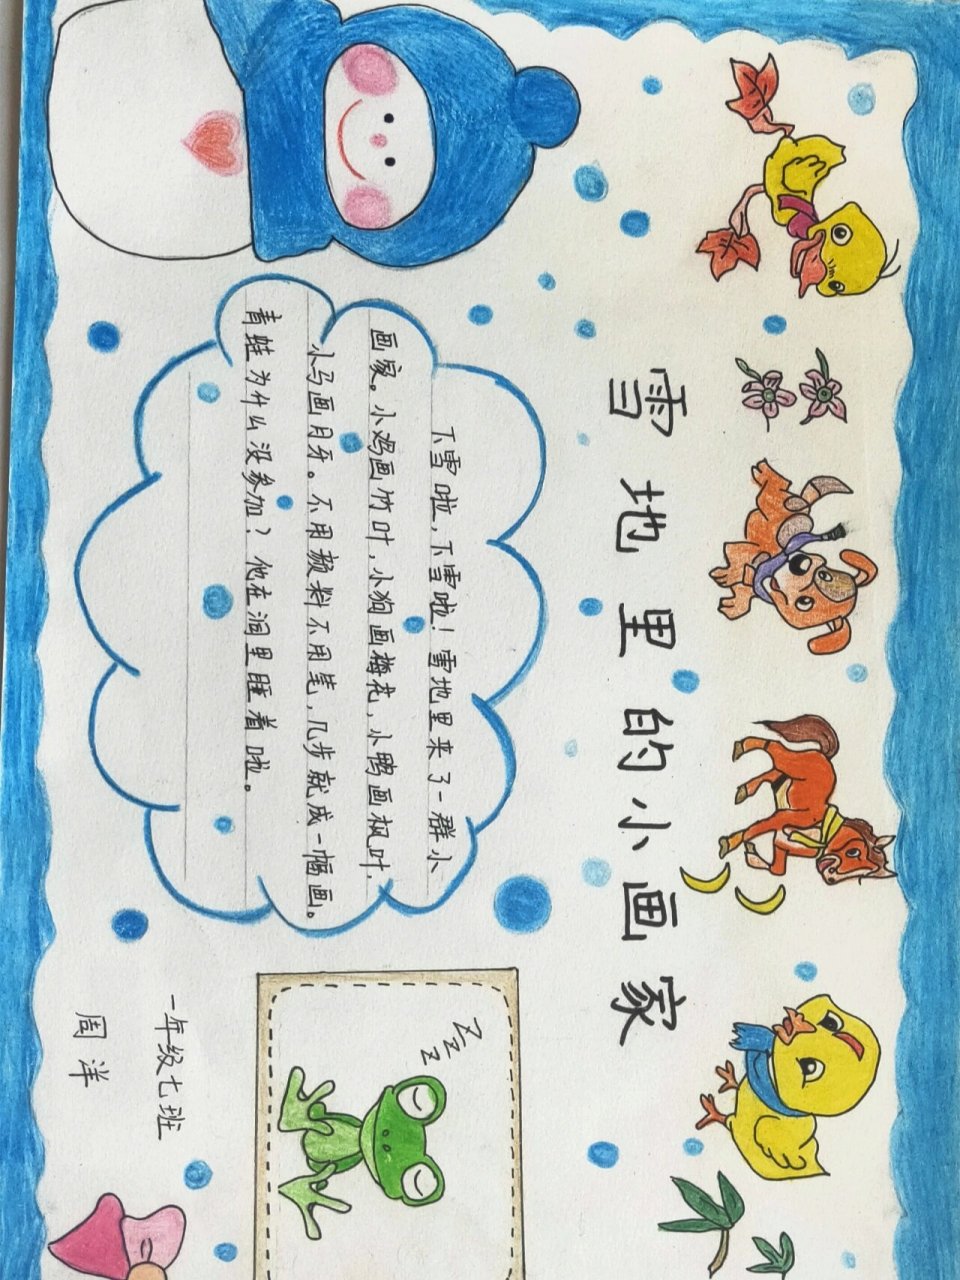 雪地里的小画家
下雪啦，下雪啦！雪地里来了一群小
画家。小鸡画竹叶，小狗画梅花，小鸭画枫叶，
小马画月牙。不用颜料不用笔，几步就成一幅画。
青蛙为什么没参加？他在洞里睡着啦。
Z
Z
Z
一年级七班
周洋